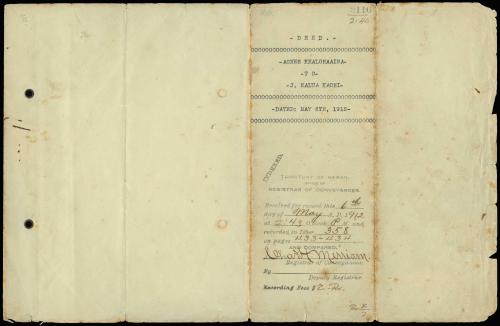 2:40
-DEED.-
-AGNES KEALOHAAINA-
-TO-
-J. KALUA KAOHI-
-DATED: MAY 6TH, 1912-
INDEXED
TERRITORY OF HAWAII,
OFFICE OF
REGISTRAR OF CONVEYANCES
Received for record this 6th
day of May A. D. 1912
at 2:43 o'clock P M. and
recorded in Liber 358
on pages 433-434
AND COMPARED.
Chas H Merriam.
Registrar of Conveyances
By
Deputy Registrar
Recording Fees $2.